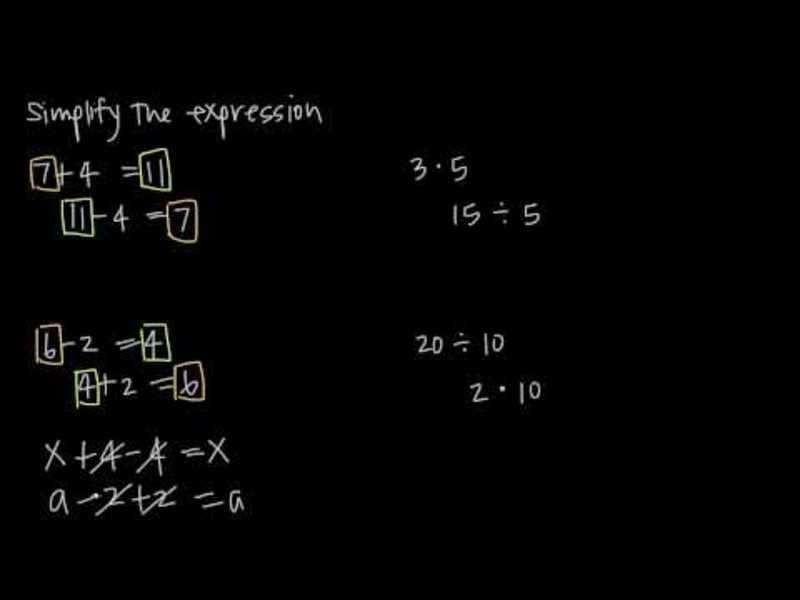 Simplify The expression
7+4 =11
11-4 =7
6-2 =4
4+2 =6
x+4-4 =x
a-2+2 =a
3·5
15÷5
20÷10
2·10